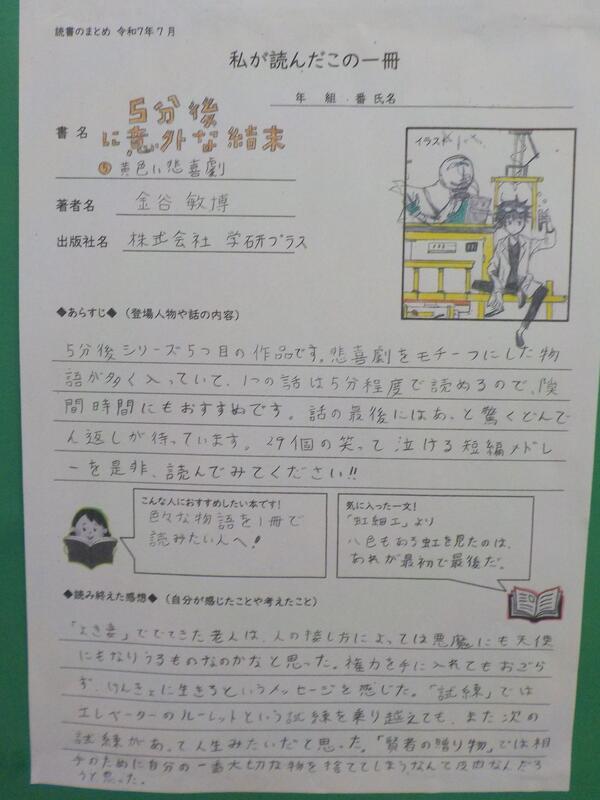 読書のまとめ 令和7年7月
私が読んだこの一冊
年 組 番 氏名
書名
5分後
に意外な結末
⑤黄色い悲喜劇
著者名 金谷 敏博
出版社名 株式会社 学研プラス
イラスト
◆あらすじ◆(登場人物や話の内容)
5分後シリーズ5つ目の作品です。悲喜劇をモチーフにした物
語が多く入っていて、1つの話は5分程度で読めるので、隙
間時間にもおすすめです。話の最後にはあっと驚くどんで
ん返しが待っています。29個の笑って泣ける短編メドレ
ーを是非、読んでみてください!!
こんな人におすすめしたい本です!
色々な物語を1冊で
読みたい人へ!
気に入った一文!
「虹細工」より
八色もある虹を見たのは、
あれが最初で最後だ。
◆読み終えた感想◆(自分が感じたことや考えたこと)
「よき妻」ででてきた老人は、人の接し方によっては悪魔にも天使
にもなりうるものなのかなと思った。権力を手に入れてもおごら
ず、けんきょに生きるというメッセージを感じた。「試練」では
エレベーターのルーレットという試練を乗り越えても、また次の
試練があって人生みたいだと思った。「賢者の贈り物」では相
手のために自分の一番大切な物を捨ててしまうなんて皮肉なんだろ
うと思った。